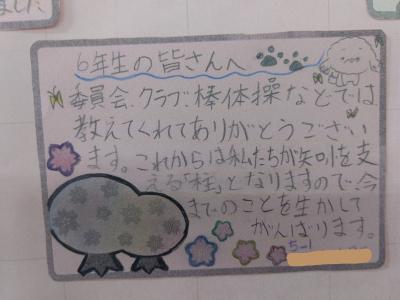 ました
6年生の皆さんへ
委員会、クラブ、棒体操などでは
教えてくれてありがとうござい
ます。これからは私たちが矢口小を支
える「柱」となりますので、今
までのことを生かして
がんばります。
5-1